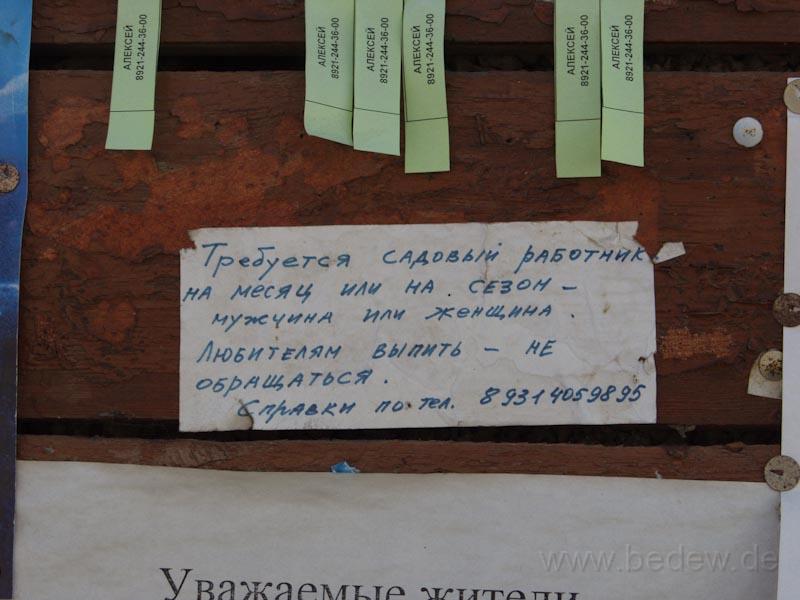 АЛЕКСЕЙ
8921-244-36-00
АЛЕКСЕЙ
8921-244-36-00
АЛЕКСЕЙ
8921-244-36-00
АЛЕКСЕЙ
8921-244-36-00
АЛЕКСЕЙ
8921-244-36-00
АЛЕКСЕЙ
8921-244-36-00
Требуется садовый работник
на месяц или на сезон –
мужчина или женщина.
Любителям выпить – не
обращаться.
Справки по тел. 89314059895
Уважаемые жители
www.bedew.de